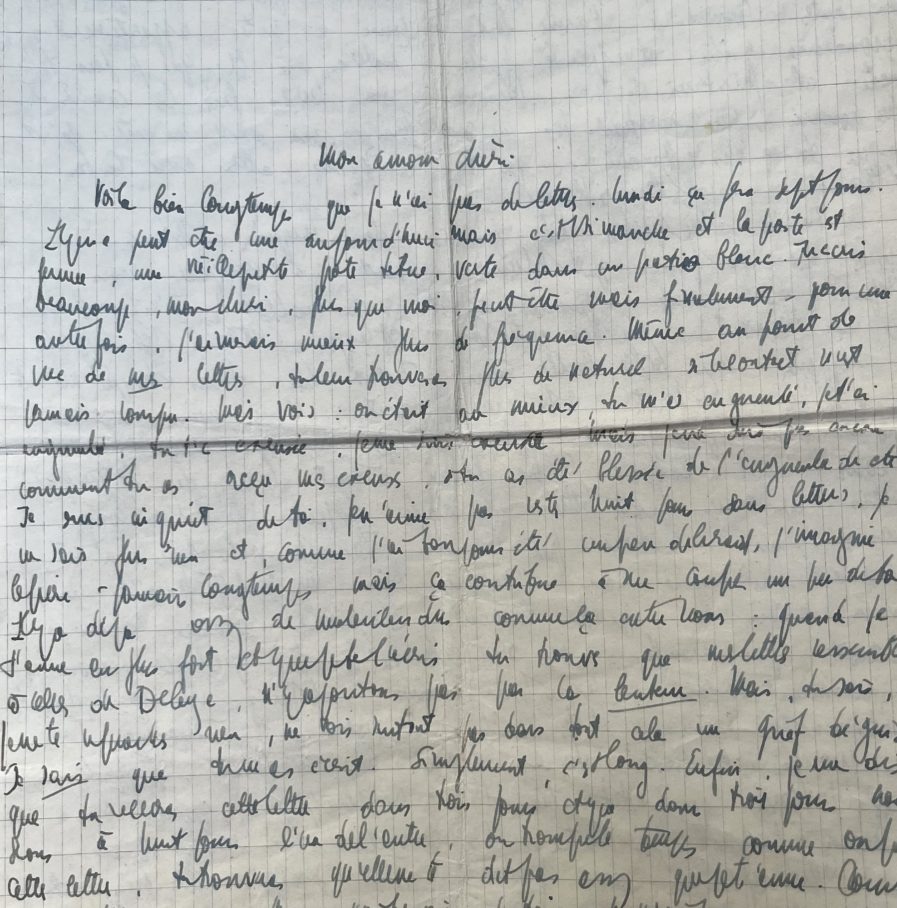 Mon amour chéri.
Voilà bien longtemps que je n'ai pas de lettres. Lundi ça fera sept jours.
Il y en a peut être une aujourd'hui mais c'est dimanche et la poste est
fermée, une vieille petite poste têtue, verte dans un patio blanc. Tu écris
beaucoup, mon chéri, plus que moi, peut être mais finalement - pour une
autre fois, j'aimerais mieux plus de fréquence. Même au point de
vue de mes lettres, tu leur trouveras plus de naturel si le contact n'est
jamais rompu. Mais vois : on était au mieux, tu m'as engueulé, je t'ai
engueulée, tu t'es excusée, je me suis excusé mais je ne sais pas encore
comment tu as reçu mes excuses, si tu as été blessée de l'engueulade etc
Je suis inquiet de toi. Je n'aime pas ces huit jours sans lettres, je
ne sais plus rien et, comme j'ai toujours été un peu délirant, j'imagine
le pire - jamais longtemps mais ça contribue à me couper un peu de toi
Il y a déjà assez de malentendus comme ça entre nous : quand je
t'aime en plus fort et que je te l'écris tu trouves que mes lettres ressemblent
à celles de Delage, n'y ajoutons pas par la lenteur. Mais, tu sais,
je ne te reproche rien, ne vois surtout pas dans tout cela un grief déguisé
Je sais que tu m'as écrit. Simplement, c'est long. Enfin, je me dis
que tu recevras cette lettre dans trois jours et que dans trois jours nous
à huit jours l'un de l'autre, on
cette lettre, tu trouveras qu'elle ne te dit pas assez que je t'aime.